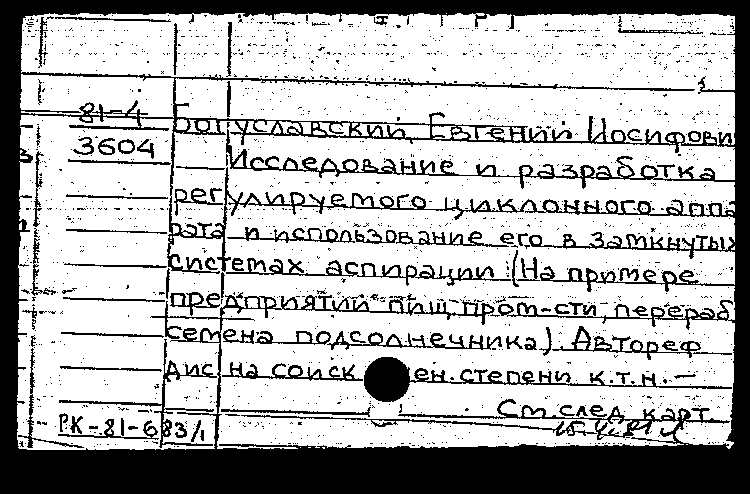 81-4
3604
Богуславский, Евгений Иосифови
Исследование и разработка
регулируемого циклонного аппа
рата и использование его в замкнутых
системах аспирации (На примере
предприятий пищ. пром-сти, перераб
семена подсолнечника). Автореф
дис на соиск ен. степени к.т.н. —
См. след. карт.
РК-81-683/1